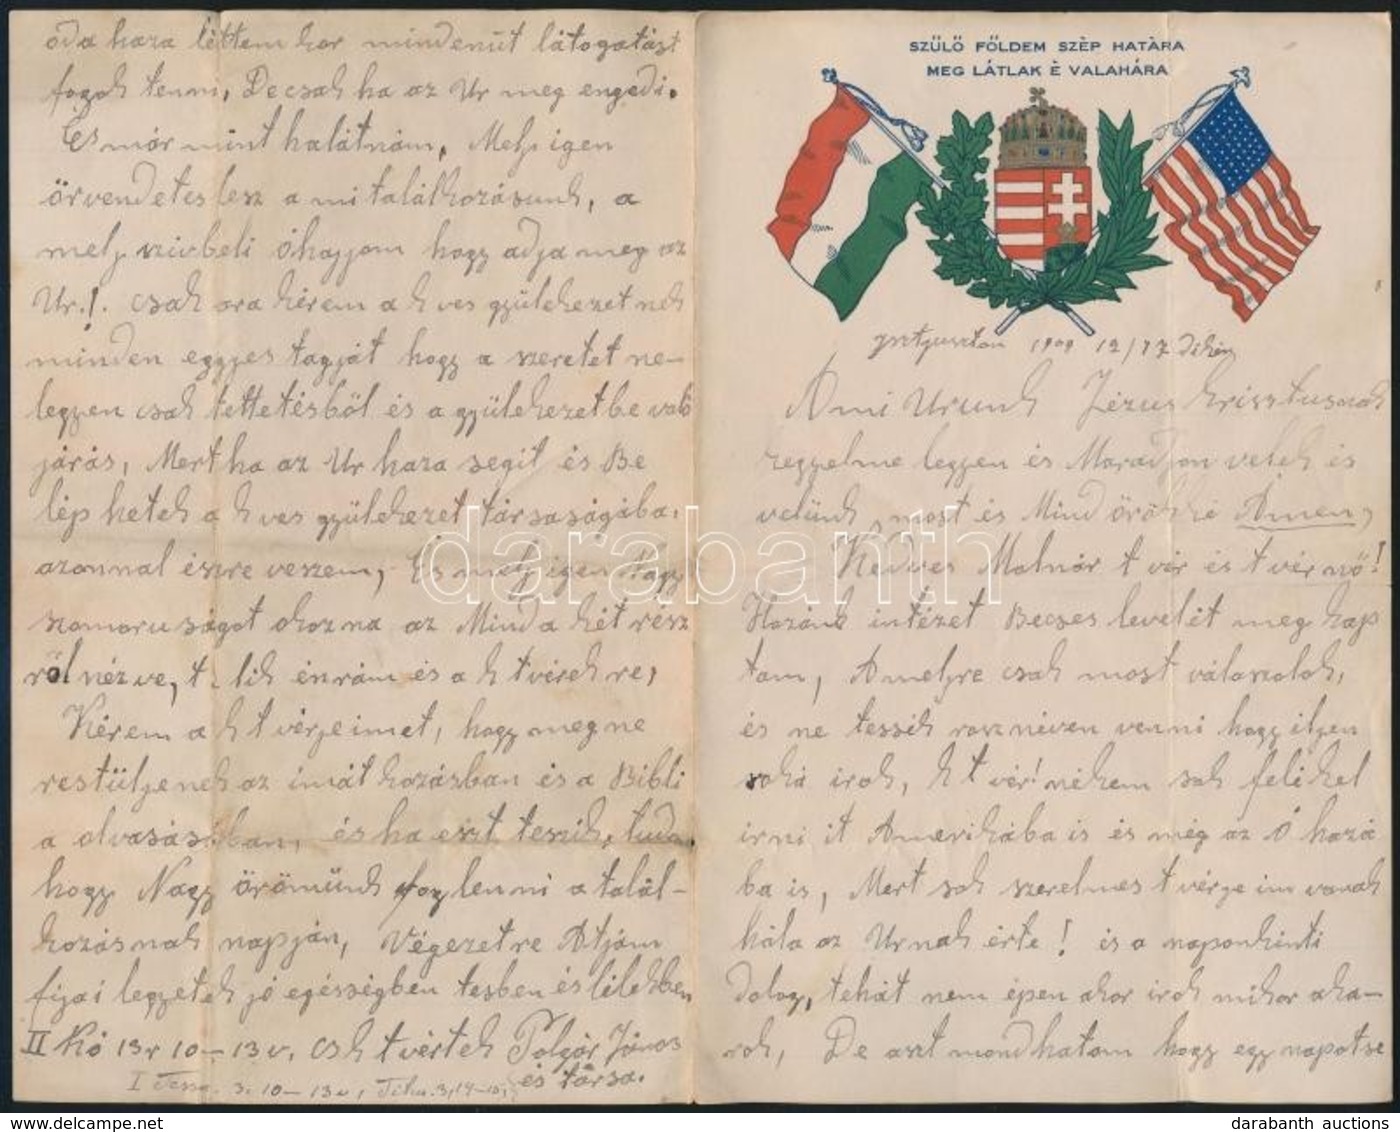 SZÜLŐ FÖLDEM SZÈP HATÀRA
MEG LÁTLAK È VALAHÁRA
1909 12/17 dikén
A mi Urunk Jézus krisztusnak
kegyelme legyen és Maradjon velek és
velünk, most és Mind örökké Amen,
Kedves Molnár t vér és t vérnő!
Hozánk intézet Becses levelét meg kap
tam, Amelyre csak most válaszolok,
és ne tessék rosz néven venni hogy ilyen
soká irok, k t vér! nékem sok felé kel
irni it Amerikába is és még az Ó hazá
ba is, Mert sok szerelmes t vérje im vanak
hála az Urnak érte! és a naponkénti
dolog, tehát nem épen akor irok mikor aka-
rok, De aszt mondhatom hogy egy napot se
oda haza léttem kor mindenüt látogatást
fogok tenni, De csak ha az Ur meg engedi.
És már mint ha látnám, Mely igen
örvendetes lesz a mi találkozásunk, a
mely szivbeli óhajjom hogy adja meg az
Ur.! csak ara kérem a k ves gyülekezet nek
minden eggyes tagját hogy a szeretet ne-
legyen csak tettetésböl és a gyülekezetbe való
járás, Mert ha az Ur haza segit és Be
lép hetek a k ves gyülekezet társaságába.
azonnal észre veszem, És mely igen Nagy
szomoruságot okozna az Mind a két rész
ről nézve, t. lik én rám és a k t vérek re,
Kérem a k t vérjeimet, hogy meg ne
restüljenek az imát kozásban és a Bibli
a olvasásban, és ha eszt teszik, tudo
hogy Nagy örömünk fog lenni a talál-
kozásnak napján, Végezetre Atjám
fijai legyetek jó egésségben tesben és lélekben
II Kó 13r 10-13v. csk t vértek Polgár János
és társa.
I Tessa. 3. 10-13v,
darabanth
darabanth auctions